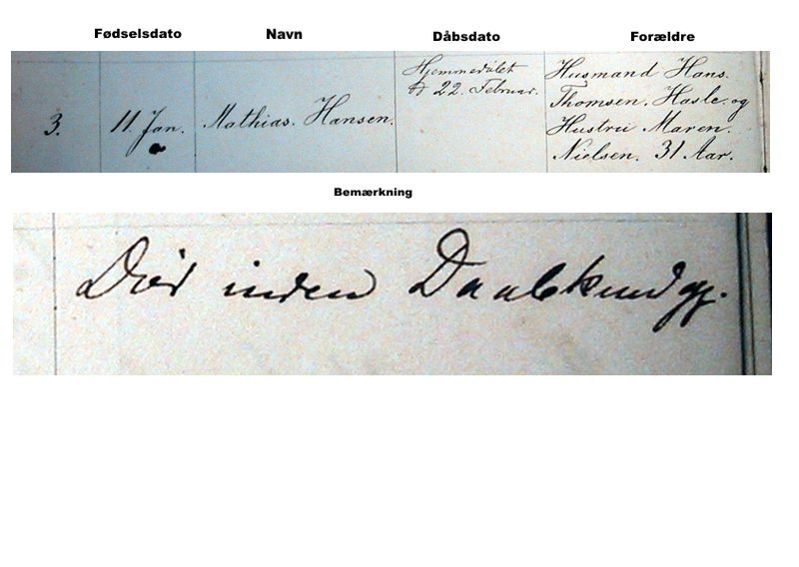 Fødselsdato Navn Dåbsdato Forældre
3. 11. Jan. Mathias. Hansen.
Hjemmedøbt
d 22. Februar.
Husmand Hans.
Thomsen, Hasle. og
Hustru Maren.
Nielsen. 31 Aar.
Bemærkning
Død inden Daabskundgj.